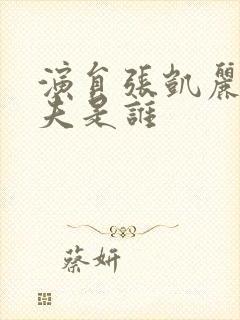 演員張凱麗
夫是誰
蔡妍